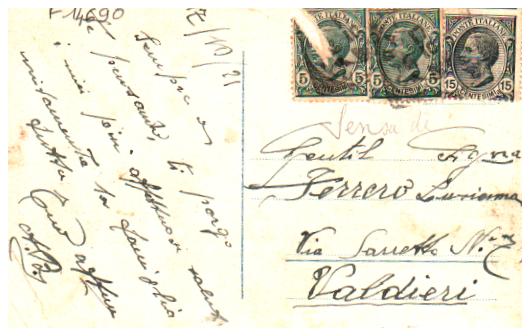 F 14690
7/10/21
Sempre
te pensando, ti porgo
i miei più affettuosi saluti
unitamente la famiglia
tutta
Tuo aff.mo
POSTE ITALIANE
5 CENTESIMI 5
POSTE ITALIANE
5 CENTESIMI 5
POSTE ITALIANE
15 CENTESIMI 15
Gentil Sig.na
Ferrero
Via Sarretto N. 7
Valdieri